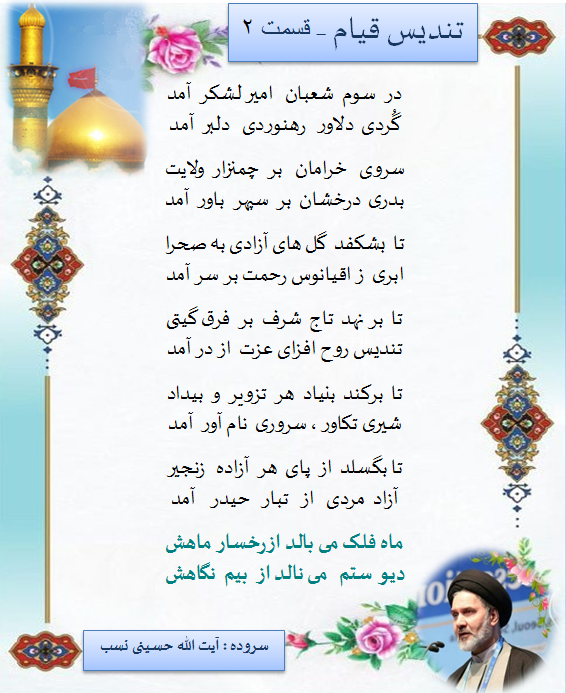 تندیس قیام - قسمت ۲
در سوم شعبان امیر لشکر آمد
گُردی دلاور رهنوردی دلبر آمد
سروی خرامان بر چمنزار ولایت
بدری درخشان بر سپهر باور آمد
تا بشکفد گل های آزادی به صحرا
ابری ز اقیانوس رحمت بر سر آمد
تا بر نهد تاج شرف بر فرق گیتی
تندیس روح افزای عزت از در آمد
تا برکند بنیاد هر تزویر و بیداد
شیری تکاور ، سروری نام آور آمد
تا بگسلد از پای هر آزاده زنجیر
آزاد مردی از تبار حیدر آمد
ماه فلک می بالد از رخسار ماهش
دیو ستم می نالد از بیم نگاهش
سروده : آیت الله حسینی نسب